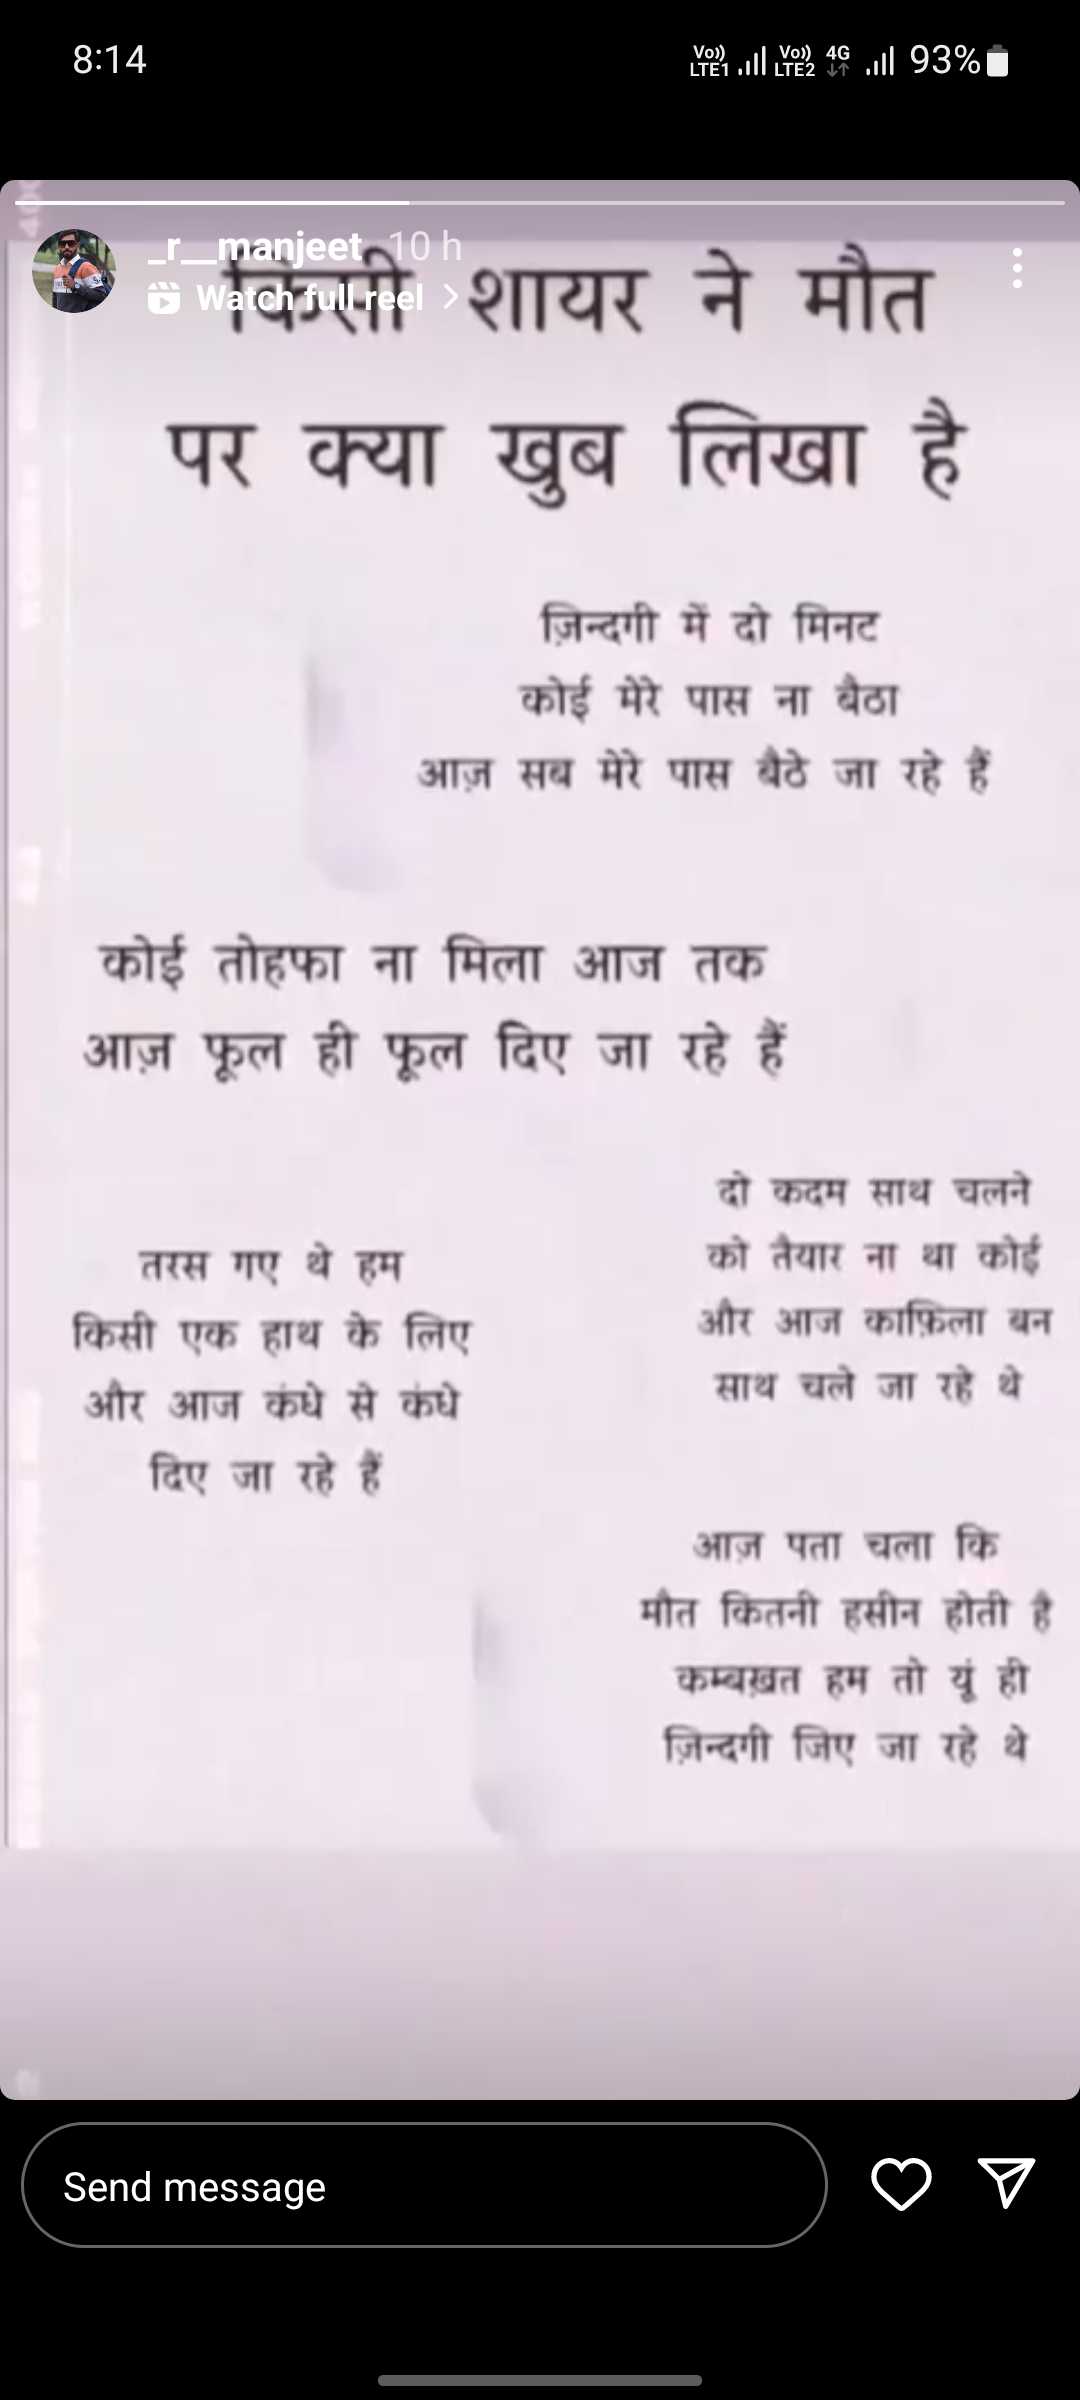 8:14
Vo)) LTE1 Vo)) LTE2 4G 93%
_r__manjeet 10 h
Watch full reel
किसी शायर ने मौत
पर क्या खुब लिखा है
ज़िन्दगी में दो मिनट
कोई मेरे पास ना बैठा
आज़ सब मेरे पास बैठे जा रहे हैं
कोई तोहफा ना मिला आज तक
आज़ फूल ही फूल दिए जा रहे हैं
तरस गए थे हम
किसी एक हाथ के लिए
और आज कंधे से कंधे
दिए जा रहे हैं
दो कदम साथ चलने
को तैयार ना था कोई
और आज काफ़िला बन
साथ चले जा रहे थे
आज़ पता चला कि
मौत कितनी हसीन होती है
कम्बख़त हम तो यूं ही
ज़िन्दगी जिए जा रहे थे
Send message